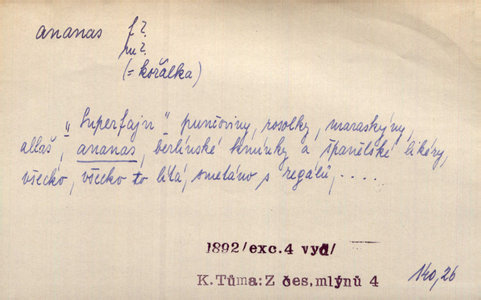 ananas f?
m?
(= kořalka)
„Superfajn" punčoviny, rosolky, maraskýny,
allaš, ananas, berlínské kmínky a španělské likéry,
všecko, všecko to lítá, smetáno s regálů, ....
1892/exc.4 vyd/
K.Tůma:Z čes.mlýnů 4
140,26